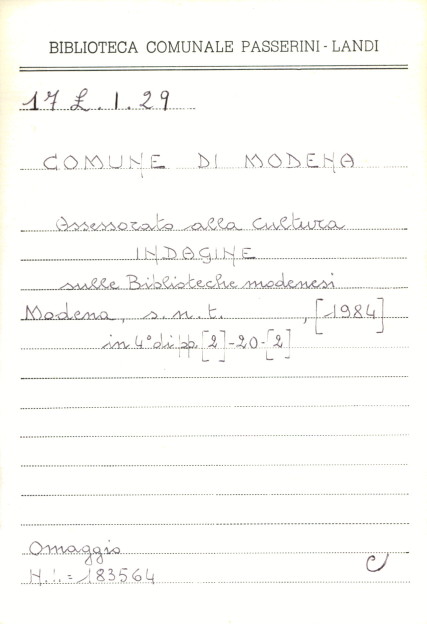 BIBLIOTECA COMUNALE PASSERINI-LANDI
17 £. 1. 29
COMUNE DI MODENA
Assessorato alla Cultura
INDAGINE
sulle Biblioteche modenesi
Modena, s. n. t. , [1984]
in 4° di pp [2]-20-[2]
Omaggio
N. i. = 183564